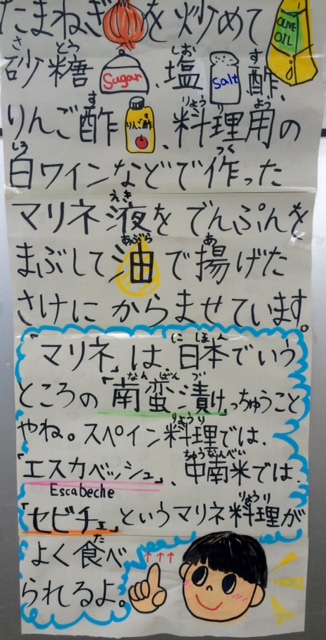 たまねぎ を炒めて
OLIVE OIL
砂糖 Sugar、塩 Salt 酢、
りんご酢 りんご酢、料理用の
白ワインなどで作った
マリネ液をでんぷんを
まぶして油で揚げた
さけにからませています。
「マリネ」は日本でいう
ところの「南蛮漬け」っちゅうこと
やね。スペイン料理では、
「エスカベッシュ」、中南米では、
Escabeche
「セビチェ」というマリネ料理が
よく食べ ↑↑↑
られるよ。